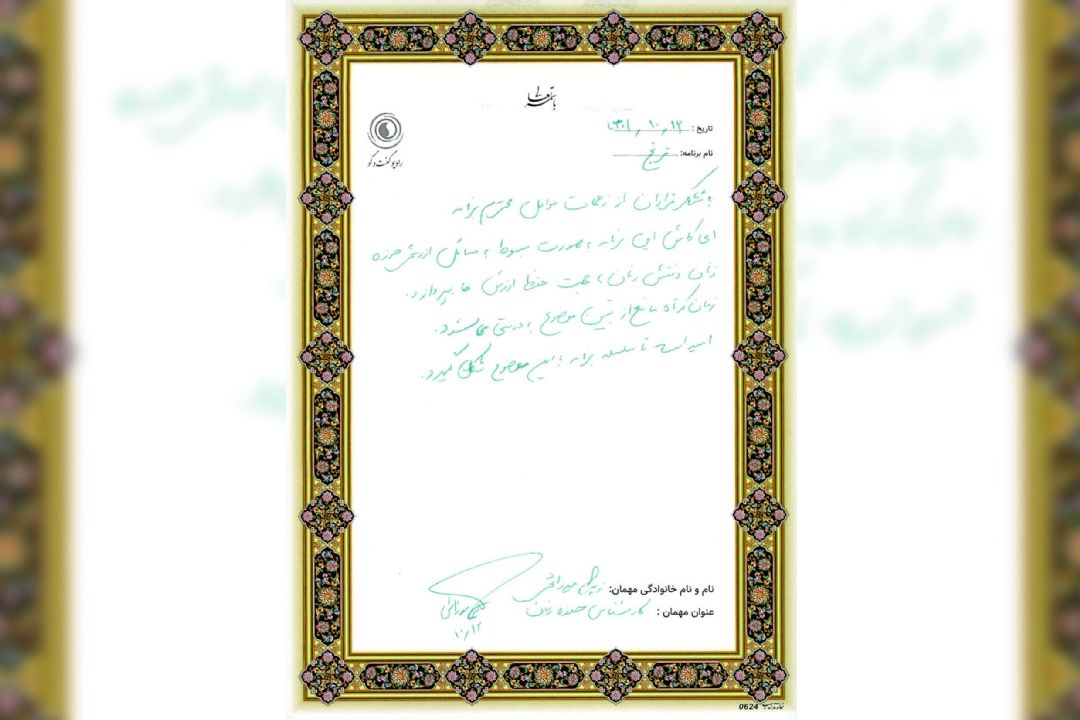 باسمه تعالی
رادیو گفت و گو
تاریخ: ۱۴۰۱٫۱۰٫۱۲
نام برنامه: ترنج
با تشکر فراوان از زحمات عوامل محترم برنامه
ای کاش این برنامه بصورت مبسوط به مسائل ارزشی حوزه
زنان و نقش زنان در جهت حفظ ارزش ها بپردازد.
زمان کوتاه مانع از تبیین موضوع به درستی می شود.
امید است تا سلسله برنامه با این موضوع شکل گیرد.
نام و نام خانوادگی مهمان:
عنوان مهمان : کارشناس حوزه زنان
۱۰٫۱۲
0624